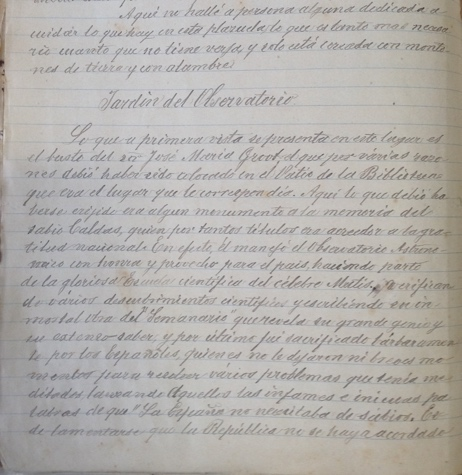 Aqui no hallé a persona alguna dedicada a
cuidar lo que hay en esta plazuela, lo que es tanto mas necesa-
rio cuanto que no tiene verja, y solo está cercada con monto-
nes de tierra y con alambre.
Jardin del Observatorio
Lo que a primera vista se presenta en este lugar es
el busto del Señor José Maria Groot, el que por várias razo-
nes debió haber sido colocado en el Pátio de la Biblioteca,
que era el lugar que le correspondia. Aqui lo que debió ha-
berse erijido era algun monumento a la memoria del
sabio Caldas, quien por tantos titulos era acreedor a la gra-
titud nacional. En efecto, él manejó el Observatorio Astronó-
mico con honra y provecho para el pais, haciendo parte
de la gloriosa científica del célebre Mutis,
do várias descubrimientos científicos y escribiendo su in-
mortal obra del "Semanario" que revela su grande genio y
su estenso saber, y por último fué sacrificado bárbaramen-
te por los Españoles, quienes no le dejaron ni breves mo-
mentos para resolver várias problemas que tenia me-
ditados lanzando Aquellos las infames e inicuas pa-
labras de que "La España no necesitaba de sábios." Es
de lamentarse que la República no se haya acordado